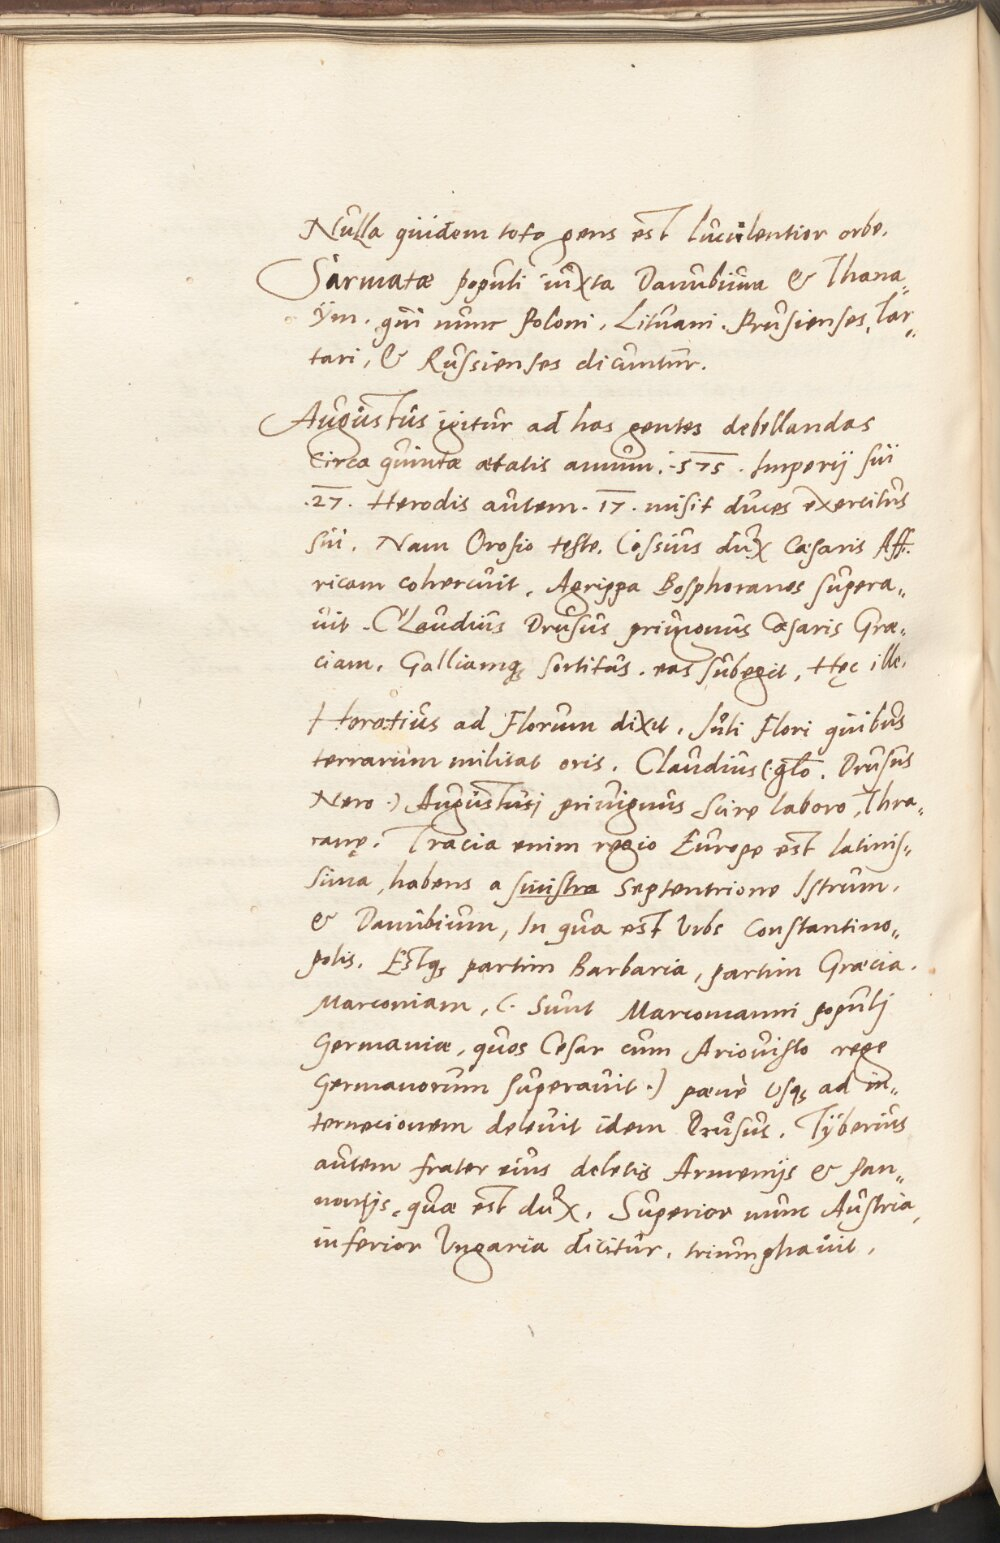 Nulla quidem toto gens est luculentior orbe.
Sarmatæ populi iuxta Danubium & Thana„
ÿm. qui nunc Poloni, Lituani. Prusienses, Tar„
tari, & Russienses dicuntur.
Augustus igitur ad has gentes debellandas
Circa quintæ ætatis annum. 575. Imperij sui
.27. Herodis autem. 17. misit duces exercitus
sui. Nam Orosio teste. Cossius dux Cæsaris Aff„
ricam cohercuit, Agrippa Bosphoranes supera„
uit. Claudius Drusus priuignus Cæsaris Græ„
ciam, Galliamq; sortitus. eas subegit, Hęc ille.
Horatius ad Florum dixit. Iuli Flori quibus
terrarum militat oris. Claudius (:glo. Drusus
Nero.) Augustusi priuignus scire laboro, Thra„
canę. Tracia enim regio Europe est latinis„
sima, habens a sinistra Septentrione Istrum.
& Danubium, In qua est Vrbs Constantino„
polis. Estq; partim Barbaria, partim Græcia.
Marconiam, (. Sunt Marcomanni populj
Germaniæ, quos Cesar cum Ariouisto rege
Germanorum superauit.) pænè Vsq; ad in„
ternecionem deleuit idem Drusus. Tÿberius
autem frater eius deletis Armenijs & Pan„
nonijs. quæ est dux. Superior nunc Austria,
inferior Vngaria dicitur, triumphauit.